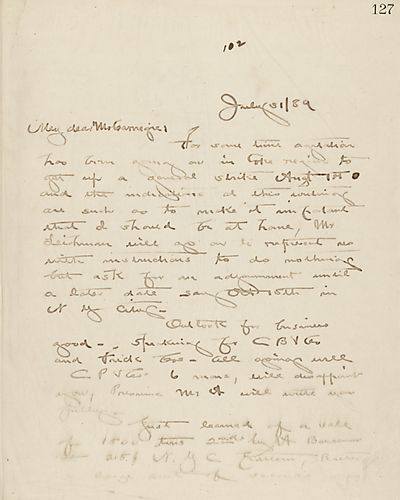 127
102
July 31/89
My dear Mr Carnegie;
For some time agitation
has been going on in the region to
get up a general strike Aug 1st
and the indications at this writing
are such as to make it important
that I should be at home, Mr
Leishman will go on to represent us
with instructions to do nothing
but ask for an adjournment until
a later date say Oct 15th in
N Y City.
Outlook for business
good - speaking for C B & Co
and Frick Co - all going well
C P & Co &, will disappoint
you, Presume Mr A will write you
fully.
Just learned of a sale
of 1500 tons by A
at N. Y. C.